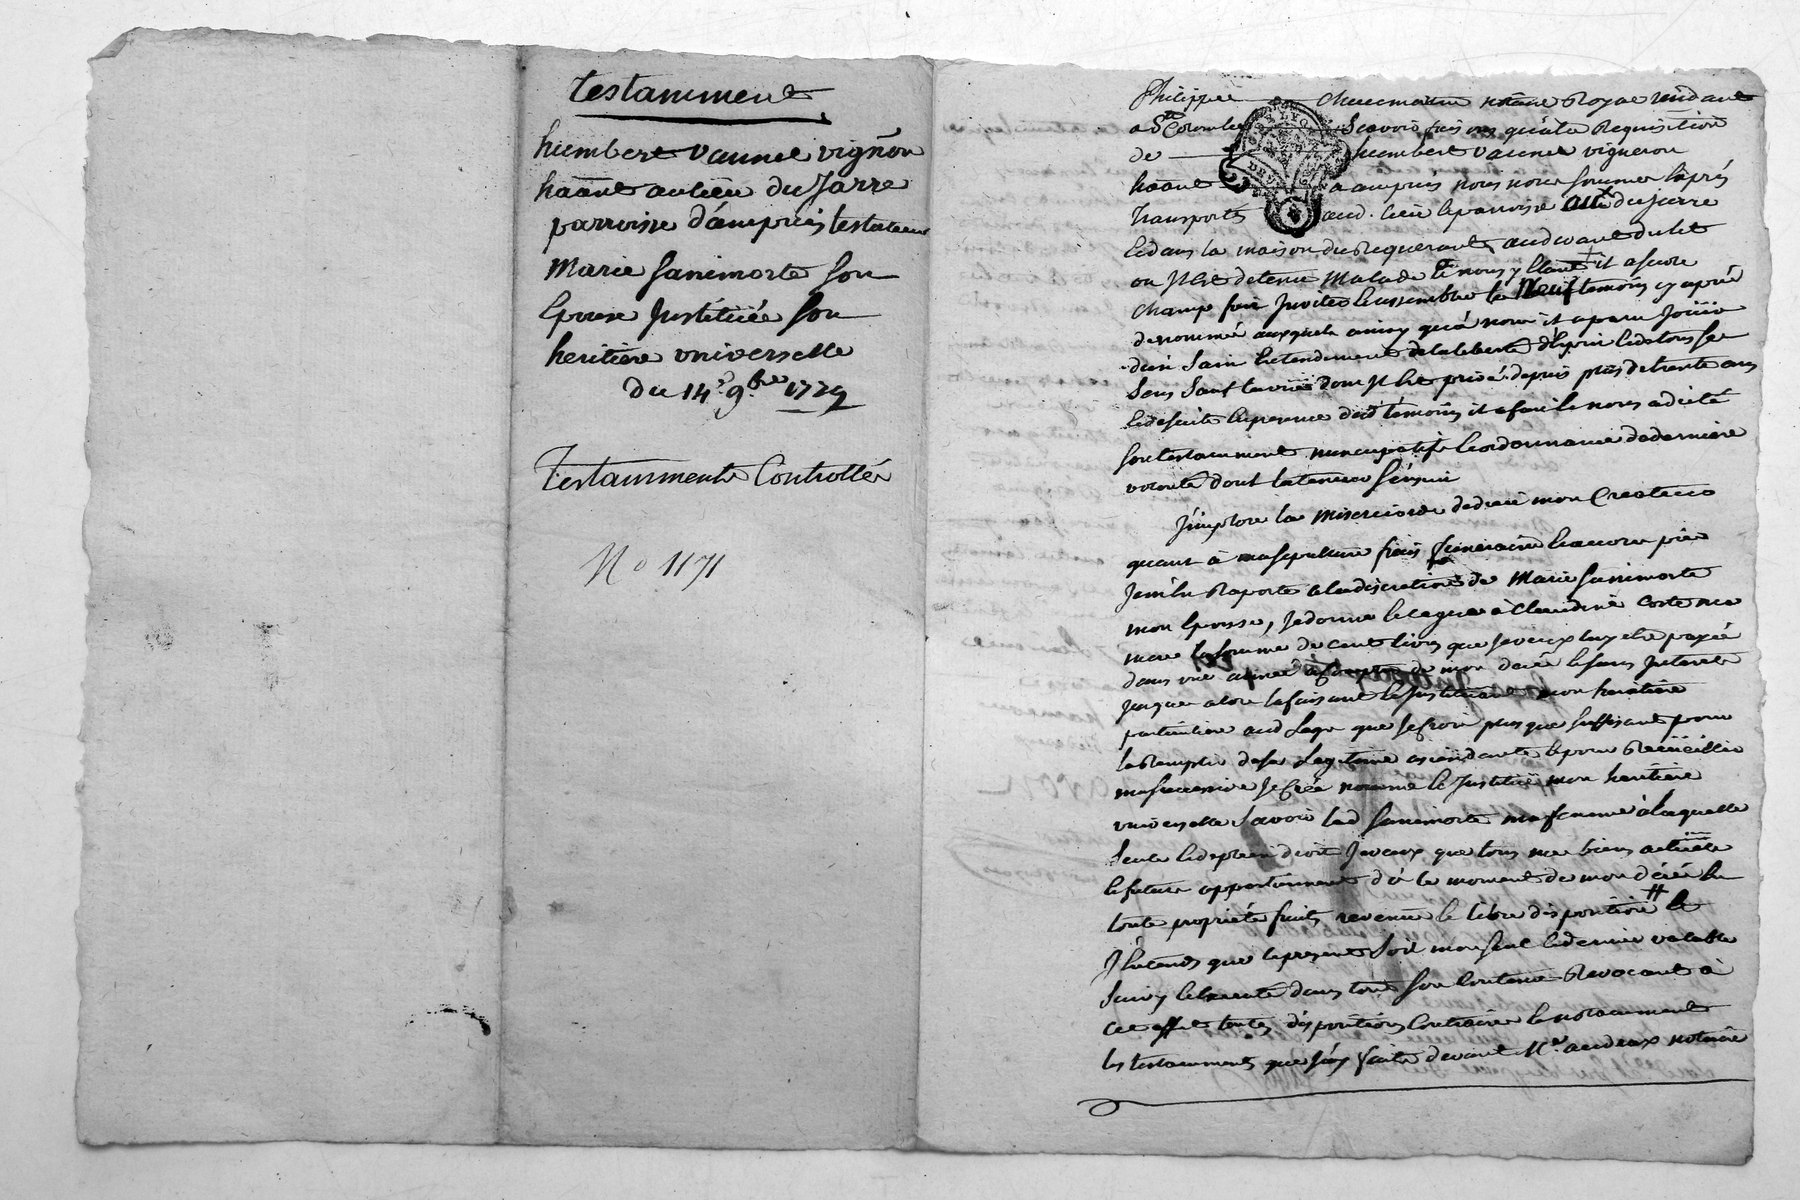 Testamment
humbert vaunel vignon
ha&#257;nt au lieu du Jarre
parroisse d'ampuis testateur
Marie Sanimorte Son
Epouse Justituée Son
heritière universelle
Du 14e 9bre 1729
Testamment Controllé
No 1171
Philippe Chaumartin notaire Royal résidant
a Ste Colombe Scavoir fais que à la Requisition
de humbert vaunel vigneron
ha&#257;nt a ampuis nous nous sommes Exprés
Transporté aud. lieu du Jarre
Et dans la maison du Requerant audevant du lit
ou Il Est detenu Malade Et nous y Etant il a sur le
champ fait Inviter Et assembler le Neuf temoins cy aprés
denommé auxquels ainsy qu'à nous it a paru Jouir
d'un Sain Entendement de la liberté d'Esprit Et de tous Ses
Sens Sauf la vüe dont Il Est privé depuis plus de trente ans
Et de suite En presence desd temoins it a fait Et nous a dicté
Son testamment nuncupatif Et ordonnance de derniere
volonté dont la teneur S'ensuit
J'implore la Misericorde de dieu mon Createur
quant à ma sepulture frais funeraire Et aucun pies
Jem'En Raporte a la discretion de Marie Sanimorte
mon Epouse, Je donne Et Legue à Claudine Coste ma
mere la Somme de cent livres que Je veux luy etre payée
dans une année de mon decés Et sans Interets
Jusques alors la faisant Et Instituant mon heritière
particuliere aud Legs que Je Croi plus que Suffisant pour
la Remplir de sa Legitime ascendante Et pour Recüeillir
ma Succession Je Crée nomme Et Institüe mon heritière
universelle Savoir lad Sanimorte ma femme à laquelle
Seule Et de plein droit Je veux que tous me biens actuels
Et futurs appartiennent d'és le moment de mon décés En
toute proprieté fruits revenus Et libre disposition # Et
J'Entends que le present Soit mon seul Et dernier valable
Suivy Et Executé dans tout Son Contenu Revocant à
cet effet toutes dispositions Contraires Et notamment
les testamments que J'ay faits devant Me audeux notaire